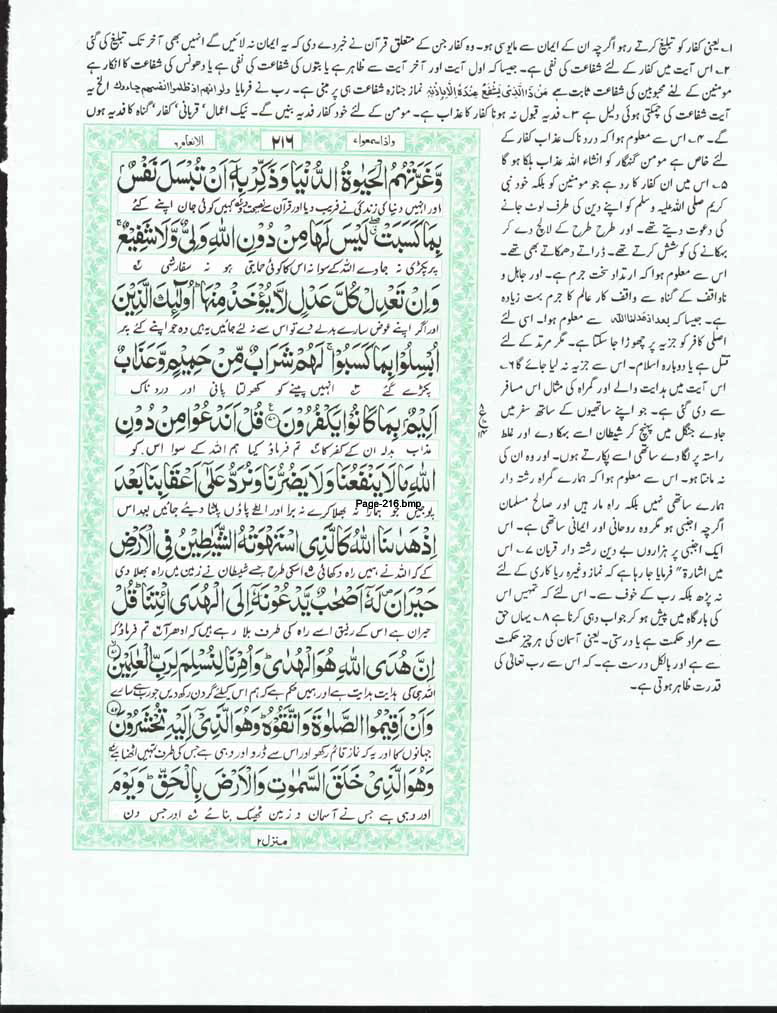 ۱۔ یعنی کفار کو تبلیغ کرتے رہو اگرچہ ان کے ایمان سے مایوسی ہو۔ وہ کفار جن کے متعلق قرآن نے خبر دے دی کہ یہ ایمان نہ لائیں گے انہیں بھی آخر تک تبلیغ کی گئی
۲۔ اس آیت میں کفار کے لئے شفاعت کی نفی ہے۔ جیسا کہ اول آیت اور آخر آیت سے ظاہر ہے یا بتوں کی شفاعت کی نفی ہے یا دھونس کی شفاعت کا انکار ہے
مومنین کے لئے محبوبین کی شفاعت ثابت ہے مَنْ ذَا الَّذِیْ یَشْفَعُ عِنْدَهٗ اِلَّا بِاِذْنِهٖ نماز جنازہ شفاعت ہی پر مبنی ہے۔ رب نے فرمایا ولو انهم اذ ظلموا انفسهم جاءوك الخ یہ
آیت شفاعت کی چمکتی ہوئی دلیل ہے ۳۔ فدیہ قبول نہ ہونا کفار کا عذاب ہے۔ مومن کے لئے خود کفار فدیہ بنیں گے۔ نیک اعمال' قربانی' کفار' گناہ کا فدیہ ہوں
گے۔ ۴۔ اس سے معلوم ہوا کہ دردناک عذاب کفار کے
لئے خاص ہے مومن گنہگار کو انشاء اللہ عذاب ہلکا ہو گا
۵۔ اس میں ان کفار کا رد ہے جو مومنین کو بلکہ خود نبی
کریم صلی اللہ علیہ وسلم کو اپنے دین کی طرف لوٹ جانے
کی دعوت دیتے تھے۔ اور طرح طرح کے لالچ دے کر
بہکانے کی کوشش کرتے تھے۔ ڈراتے دھمکاتے بھی تھے۔
اس سے معلوم ہوا کہ ارتداد سخت جرم ہے۔ اور جاہل و
ناواقف کے گناہ سے واقف کار عالم کا جرم بہت زیادہ
ہے۔ جیسا کہ بعد اذ هدانا الله سے معلوم ہوا۔ اسی لئے
اصلی کافر کو جزیہ پر چھوڑا جا سکتا ہے۔ مگر مرتد کے لئے
قتل ہے یا دوبارہ اسلام۔ اس سے جزیہ نہ لیا جائے گا ۶۔
اس آیت میں ہدایت والے اور گمراہ کی مثال اس مسافر
سے دی گئی ہے۔ جو اپنے ساتھیوں کے ساتھ سفر میں
جاوے جنگل میں پہنچ کر شیطان اسے بہکا دے اور غلط
راستہ پر لگا دے ساتھی اسے پکارتے ہوں۔ اور وہ ان کی
نہ مانتا ہو۔ اس سے معلوم ہوا کہ ہمارے گمراہ رشتہ دار
ہمارے ساتھی نہیں بلکہ راہ مار ہیں اور صالح مسلمان
اگرچہ اجنبی ہو مگر وہ روحانی اور ایمانی ساتھی ہے۔ اس
ایک اجنبی پر ہزاروں بے دین رشتہ دار قربان ۷۔ اس
میں اشارۃ" فرمایا جا رہا ہے کہ نماز وغیرہ ریاکاری کے لئے
نہ پڑھ بلکہ رب کے خوف سے۔ اس لئے کہ تمہیں اس
کی بارگاہ میں پیش ہو کر جواب دہی کرنا ہے ۸۔ یہاں حق
سے مراد حکمت ہے یا درستی۔ یعنی آسمان کی ہر چیز حکمت
سے ہے اور بالکل درست ہے۔ کہ اس سے رب تعالیٰ کی
قدرت ظاہر ہوتی ہے۔
واذاسمعوا ۷ ۲۱۶ الانعام ۶
وَّغَرَّتْهُمُ الْحَيٰوةُ الدُّنْيَا وَذَكِّرْ بِهٖٓ اَنْ تُبْسَلَ نَفْسٌۢ
اور انہیں دنیا کی زندگی نے فریب دیا اور قرآن سے نصیحت دو کہ کہیں کوئی جان اپنے کئے
بِمَا كَسَبَتْ لَيْسَ لَهَا مِنْ دُوْنِ اللّٰهِ وَلِيٌّ وَّلَا شَفِيْعٌ
پر پکڑی نہ جا دے اللہ کے سوا نہ اس کا کوئی حمایتی ہو نہ سفارشی
وَاِنْ تَعْدِلْ كُلَّ عَدْلٍ لَّا يُؤْخَذْ مِنْهَا اُولٰٓئِكَ الَّذِيْنَ
اور اگر اپنے عوض سارے بدلے دے تو اس سے نہ لئے جائیں یہ ہیں وہ جو اپنے کئے پر
اُبْسِلُوْا بِمَا كَسَبُوْا لَهُمْ شَرَابٌ مِّنْ حَمِيْمٍ وَّعَذَابٌ
پکڑے گئے انہیں پینے کو کھولتا پانی اور دردناک
اَلِيْمٌۢ بِمَا كَانُوْا يَكْفُرُوْنَ قُلْ اَنَدْعُوْا مِنْ دُوْنِ
عذاب بدلہ ان کے کفر کا تم فرماؤ کیا ہم اللہ کے سوا اس کو
اللّٰهِ مَا لَا يَنْفَعُنَا وَلَا يَضُرُّنَا وَنُرَدُّ عَلٰٓى اَعْقَابِنَا بَعْدَ
Page-216.bmp
پوجیں جو ہمارا نہ بھلا کرے نہ برا اور الٹے پاؤں پلٹا دیئے جائیں بعد اس
اِذْ هَدٰىنَا اللّٰهُ كَالَّذِى اسْتَهْوَتْهُ الشَّيٰطِيْنُ فِى الْاَرْضِ
کے کہ اللہ نے ہمیں راہ دکھائی اسکی طرح جسے شیطان نے زمین میں راہ بھلا دی
حَيْرَانَ لَهٗٓ اَصْحٰبٌ يَّدْعُوْنَهٗٓ اِلَى الْهُدَى ائْتِنَا قُلْ
حیران ہے اس کے رفیق اسے راہ کی طرف بلا رہے ہیں کہ ادھر آ تم فرماؤ کہ
اِنَّ هُدَى اللّٰهِ هُوَ الْهُدٰى وَاُمِرْنَا لِنُسْلِمَ لِرَبِّ الْعٰلَمِيْنَ
اللہ ہی کی ہدایت ہدایت ہے اور ہمیں حکم ہے کہ ہم اس کیلئے گردن رکھ دیں جو رب ہے سارے
وَاَنْ اَقِيْمُوا الصَّلٰوةَ وَاتَّقُوْهُ وَهُوَ الَّذِيْٓ اِلَيْهِ تُحْشَرُوْنَ
جہانوں کا اور یہ کہ نماز قائم رکھو اور اس سے ڈرو اور وہی ہے جس کی طرف تمہیں اٹھنا ہے
وَهُوَ الَّذِيْ خَلَقَ السَّمٰوٰتِ وَالْاَرْضَ بِالْحَقِّ وَيَوْمَ
اور وہی ہے جس نے آسمان و زمین ٹھیک بنائے اور جس دن
منزل ۲